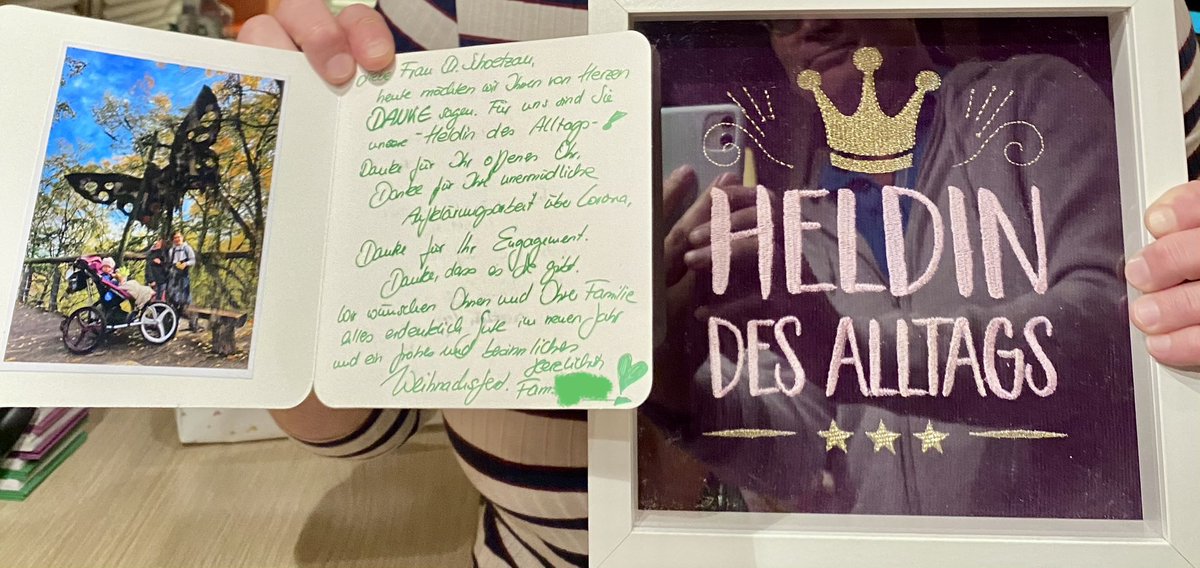 Liebe Frau D. Schoetzau,
heute möchten wir Ihnen von Herzen
DANKE sagen. Für uns sind Sie
unsere -Heldin des Alltags-!
Danke für Ihr offenes Ohr.
Danke für Ihre unermüdliche
Aufklärungsarbeit über Corona,
Danke für Ihr Engagement.
Danke, dass es Sie gibt.
Wir wünschen Ihnen und Ihre Familie
alles erdenklich Gute im neuen Jahr
und ein frohes und besinnliches
Weihnachsfest. Fam.
HELDIN
DES ALLTAGS